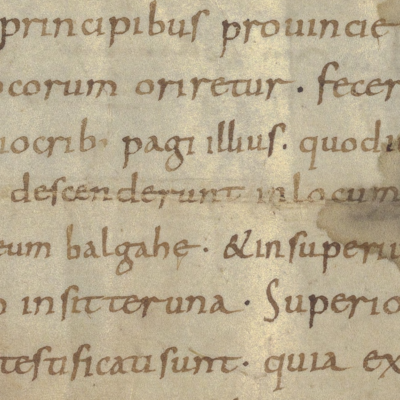 principibus prouincie
ocorum oriretur · fecer
iocrib· pagi illius. quod
descenderunt in locum
eum balgahe · &insuperiu
insitteruna · Superio
testificatisunt · quia ex